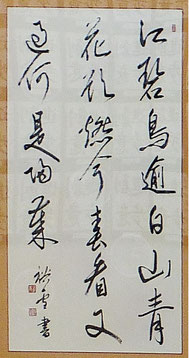 江碧鳥逾白山青
花欲燃今春看又
過何是歸年
書